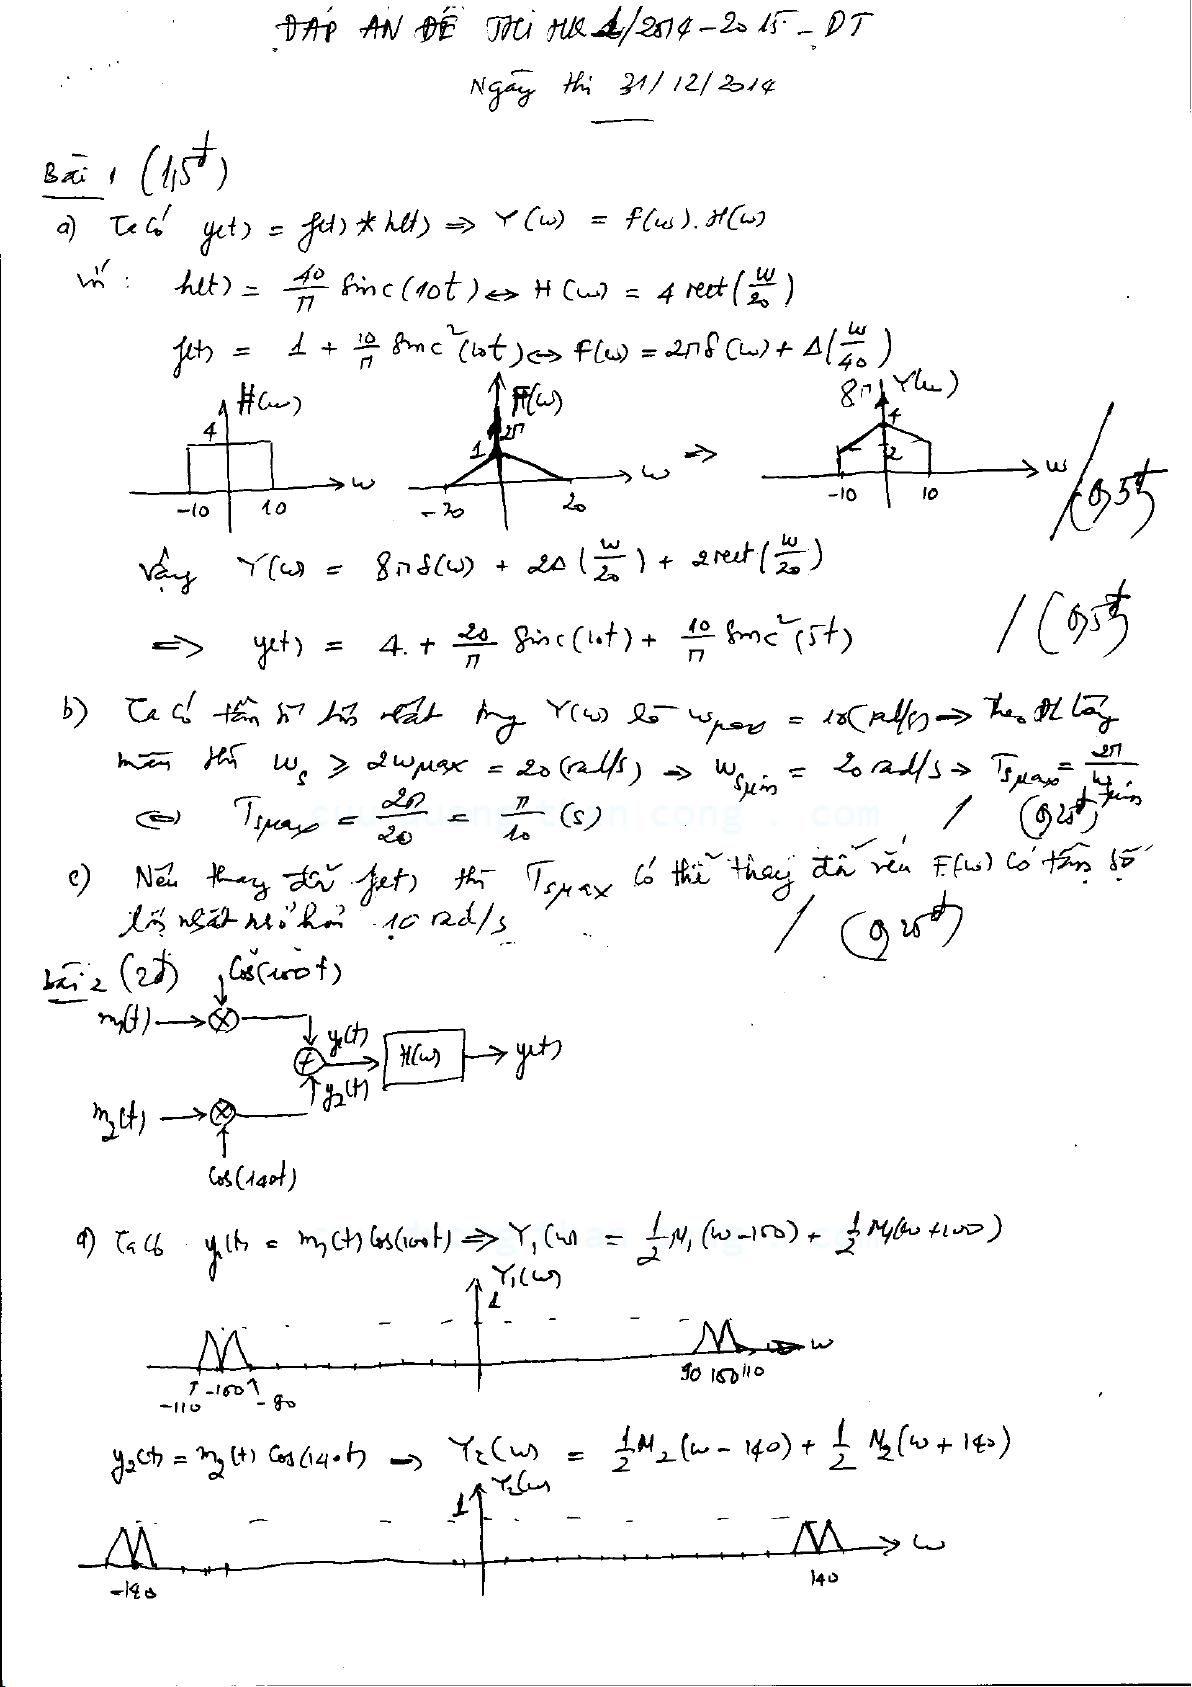 ĐÁP ÁN ĐỀ THI HK1/2014-2015-DT
Ngày thi 31/12/2014
Bài 1 (1,5đ)
a) Ta có y(t) = f(t)*h(t) ⇒ Y(ω) = F(ω).H(ω)
với : h(t) = 40/π Sinc(10t) ⇔ H(ω) = 4 rect(ω/20)
f(t) = 1 + 10/π Sinc²(10t) ⇔ F(ω) = 2πδ(ω) + Δ(ω/40)
H(ω) 4 -10 10 ω
F(ω) 2π 1 -20 20 ω
⇒
8π Y(ω) 4 2 -10 10 ω
/(0,5đ)
Vậy Y(ω) = 8πδ(ω) + 2Δ(ω/20) + 2rect(ω/20)
⇒ y(t) = 4 + 20/π Sinc(10t) + 10/π Sinc²(5t) /(0,5đ)
b) Ta có tần số lớn nhất trong Y(ω) là ωmax = 10(rad/s) ⇒ Theo ĐL lấy
mẫu thì ωs ≥ 2ωmax = 20(rad/s) ⇒ ωsmin = 20 rad/s ⇒ Tsmax = 2π/ωsmin
⇔ Tsmax = 2π/20 = π/10 (s) / (0,25đ)
c) Nếu thay đổi f(t) thì Tsmax có thể thay đổi nếu F(ω) có tần số
lớn nhất nhỏ hơn 10 rad/s / (0,25đ)
Bài 2 (2đ) Cos(100t)
m1(t) y1(t) H(ω) y(t)
m2(t) y2(t)
Cos(140t)
a) Ta có y1(t) = m1(t) Cos(100t) ⇒ Y1(ω) = 1/2 M1(ω-100) + 1/2 M1(ω+100)
Y1(ω) 1
-110 -100 -90 90 100 110 ω
y2(t) = m2(t) Cos(140t) → Y2(ω) = 1/2 M2(ω - 140) + 1/2 M2(ω + 140)
Y2(ω) 1
-140 140 ω